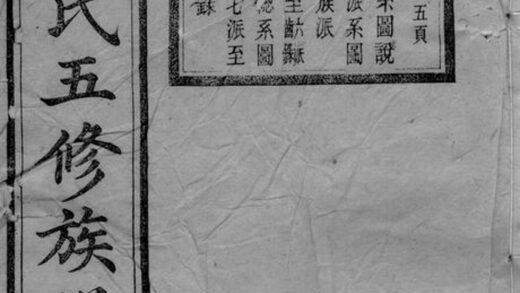 五頁
系圖說
派系圖
族派
總系圖
七派至
錄
氏五修族